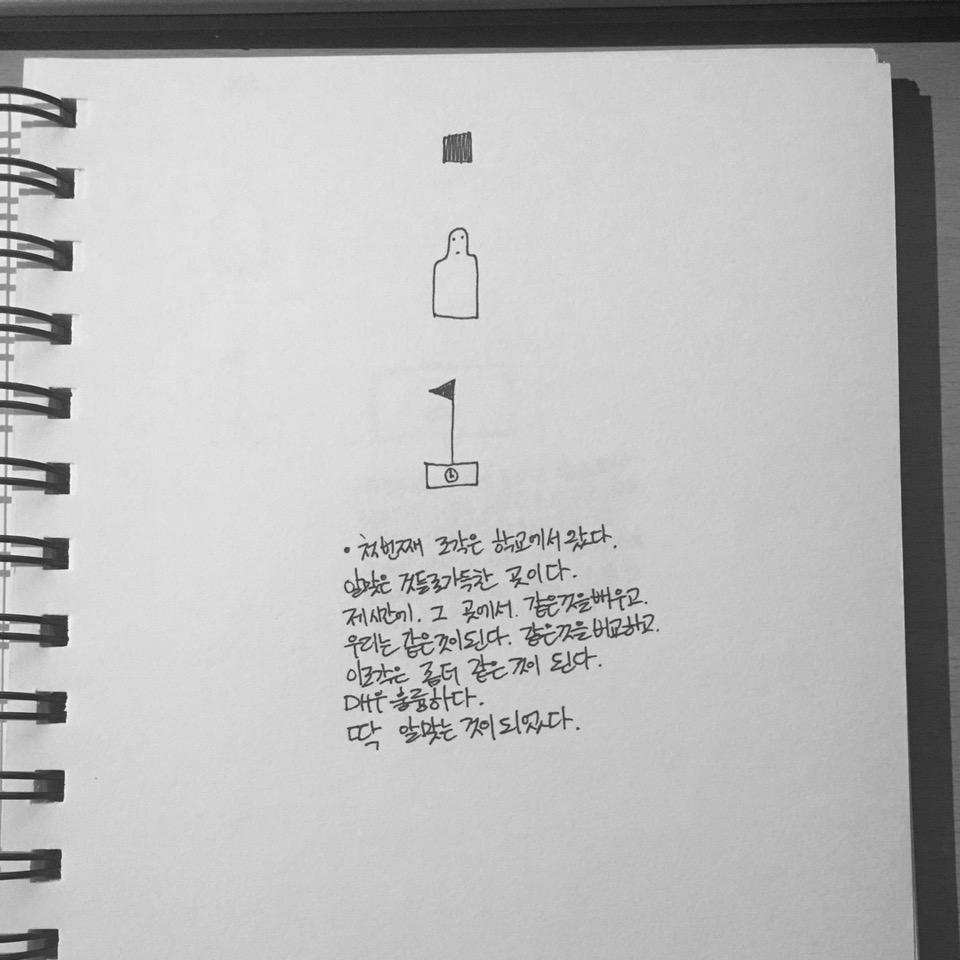 • 첫번째 조각은 학교에서 왔다.
알맞은 것들로가득찬 곳이다.
제시간에. 그 곳에서. 같은것을배우고.
우리는 같은것이된다. 같은것을비교하고.
이조각은 좀더 같은것이 된다.
매우 훌륭하다.
딱 알맞는 것이되었다.